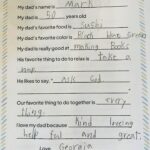 My dad's name is Mark
My dad is 50 years old
My dad's favorite food is Sushi
My dad's favorite color is Black
My dad's really good at making Books
His favorite thing to do to relax is take a
nap
He likes to say "
God
Our favorite thing to do together is evry
thing
I love my dad because kind loveing
help ful and great
Love, Georgia